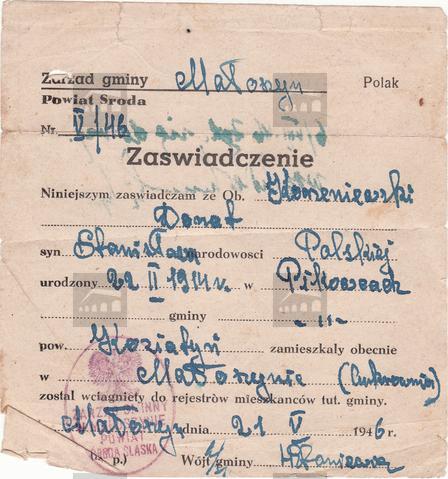 Zarzad gminy Małoszyn Polak
Powiat Sroda
Nr. V/46
Zaswiadczenie
Niniejszym zaswiadczam ze Ob.
Donat
syn Stanisława narodowosci Polskiej
urodzony 22 II 1914 r. w Pikowcach
gminy -"-
pow. Koziatyń zamieszkały obecnie
w Małoszynie (Cukrownia)
został wciagniety do rejestrów mieszkanców tut. gminy.
Małoszyn dnia 21 V 1946 r.
p.) Wójt gminy
POWIAT
SRODA SLASKA